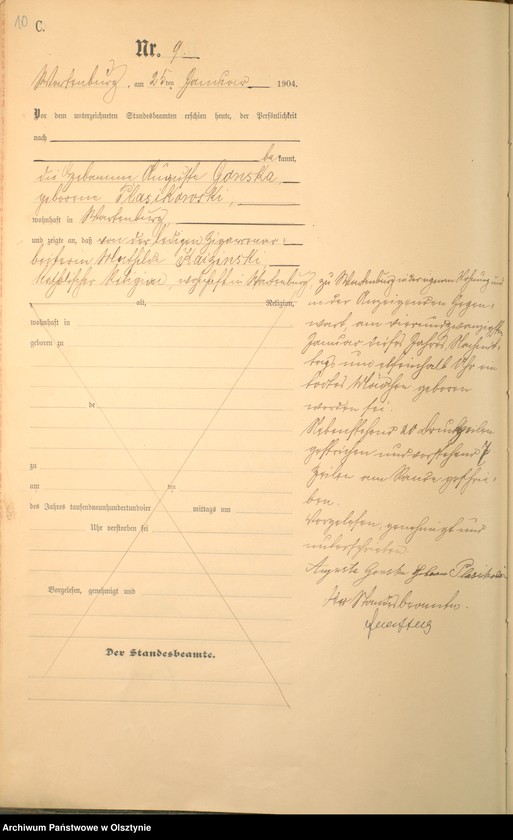 10
C.
Nr. 9
Wartenburg, am 25ten Januar 1904.
Vor dem unterzeichneten Standesbeamten erschien heute, der Persönlichkeit
nach
bekannt,
die Hebamme Auguste Gonska
geborene Plasikowski,
wohnhaft in Wartenburg
und zeigte an, daß von der ledigen Zigarrenar-
beiterin Mathilde
katholischer Religion, wohnhaft in Wartenburg, zu Wartenburg in der eigenen Wohnung und
in der Anzeigenden Gegen-
wart, am vierundzwanzigsten
Januar dieses Jahres, Nachmit-
tags um Uhr ein
totes Mädchen geboren
worden sei.
Nebenstehend 20 Druckzeilen
gestrichen und vorstehend 7
Zeilen am Rande geschrie-
ben.
Vorgelesen, genehmigt und
unterschrieben
Auguste Gonska geborene Plasikowski
Der Standesbeamte.
alt, Religion,
wohnhaft in
geboren zu
de
zu
am ten
des Jahres tausendneunhundertundvier mittags um
Uhr verstorben sei
Vorgelesen, genehmigt und
Der Standesbeamte.
Archiwum Państwowe w Olsztynie